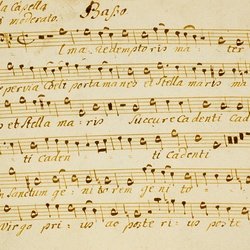 la Capella Basso
moderato.
lma redemptoris ma ter
pervia Coeli porta manes et Stella maris
et Stella ma ris Succurre Cadenti Cad
ti caden ti Cadenti
Sanctum ge ni torem ge ni to
Virgo pri us ac poste ri us poste